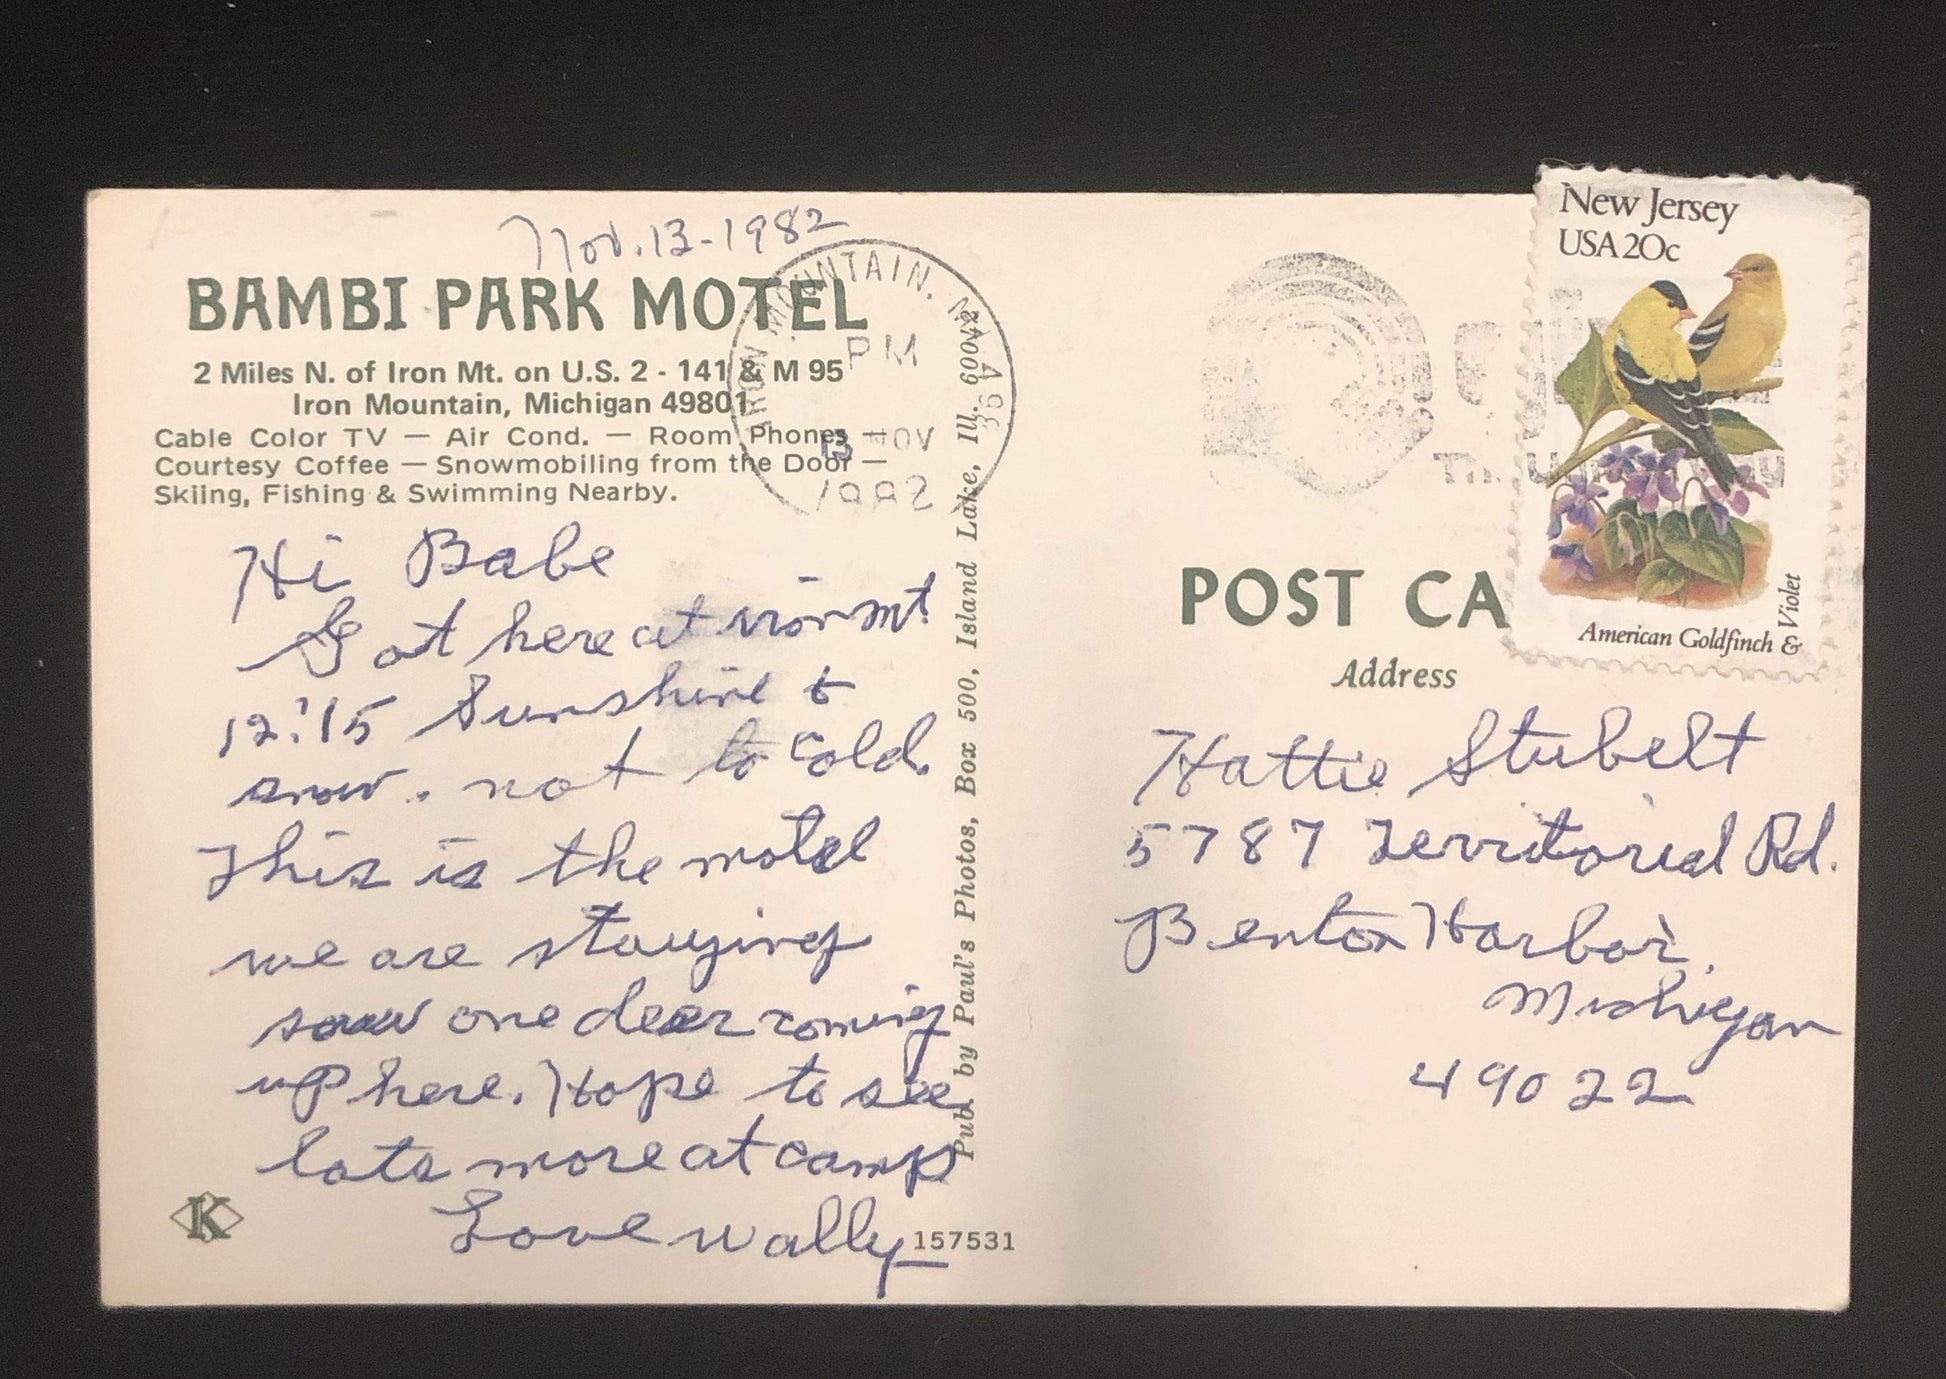 Nov. 13 - 1982
BAMBI PARK MOTEL
2 Miles N. of Iron Mt. on U.S. 2 - 141 & M 95
Iron Mountain, Michigan 49801
Cable Color TV — Air Cond. — Room Phones —
Courtesy Coffee — Snowmobiling from the Door —
Skiing, Fishing & Swimming Nearby.
Hi Babe
Got here at iron mt
12:15 Sunshine &
snow. not to cold.
This is the motel
we are staying
saw one deer coming
up here. Hope to see
lots more at camp
Love wally
K
157531
Pub. by Paul's Photos, Box 500, Island Lake, Ill. 60042
IRON MOUNTAIN, MI
PM
13 NOV
1982
New Jersey
USA 20c
American Goldfinch &
Violet
POST CA
Address
Hattie Stubelt
5787 Territorial Rd.
Benton Harbor,
Michigan
49022